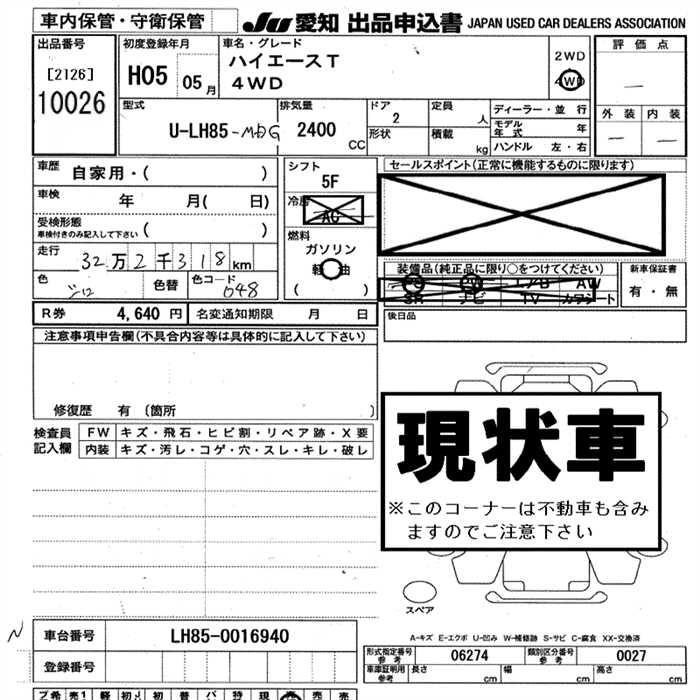 車内保管・守衛保管
JU 愛知 出品申込書 JAPAN USED CAR DEALERS ASSOCIATION
出品番号
[2126]
10026
初度登録年月
H05 05月
車名・グレード
ハイエースT
4WD
2WD
4WD
評価点
—
外装 内装
— —
型式
U-LH85-MDG
排気量
2400 CC
ドア
2
形状
定員 人
積載 kg
ディーラー・並行
モデル年式 年
ハンドル 左・右
車歴 自家用・( )
車検 年 月( 日)
受検形態
車検付きのみ記入して下さい ( )
走行 32万2千318km
色 シロ 色替 色コード 048
シフト
5F
冷房
AC
燃料
ガソリン
軽油
( )
セールスポイント(正常に機能するものに限ります)
装備品(純正品に限り○をつけてください)
PS PW エアB AW
SR ナビ TV カワシート
新車保証書
有・無
後日品
R券 4,640円 名変通知期限 月 日
注意事項申告欄(不具合内容等は具体的に記入して下さい)
修復歴 有 〔箇所 〕
検査員記入欄
FW キズ・飛石・ヒビ割・リペア跡・X要
内装 キズ・汚レ・コゲ・穴・スレ・キレ・破レ
現状車
※このコーナーは不動車も含み
ますのでご注意下さい
スペア
A-キズ E-エクボ U-凹み W-補修跡 S-サビ C-腐食 XX-交換済
N
車台番号 LH85-0016940
登録番号
形式指定番号 参考 06274 類別区分番号 参考 0027
車庫証明用 参考 長さ cm 幅 cm 高さ cm